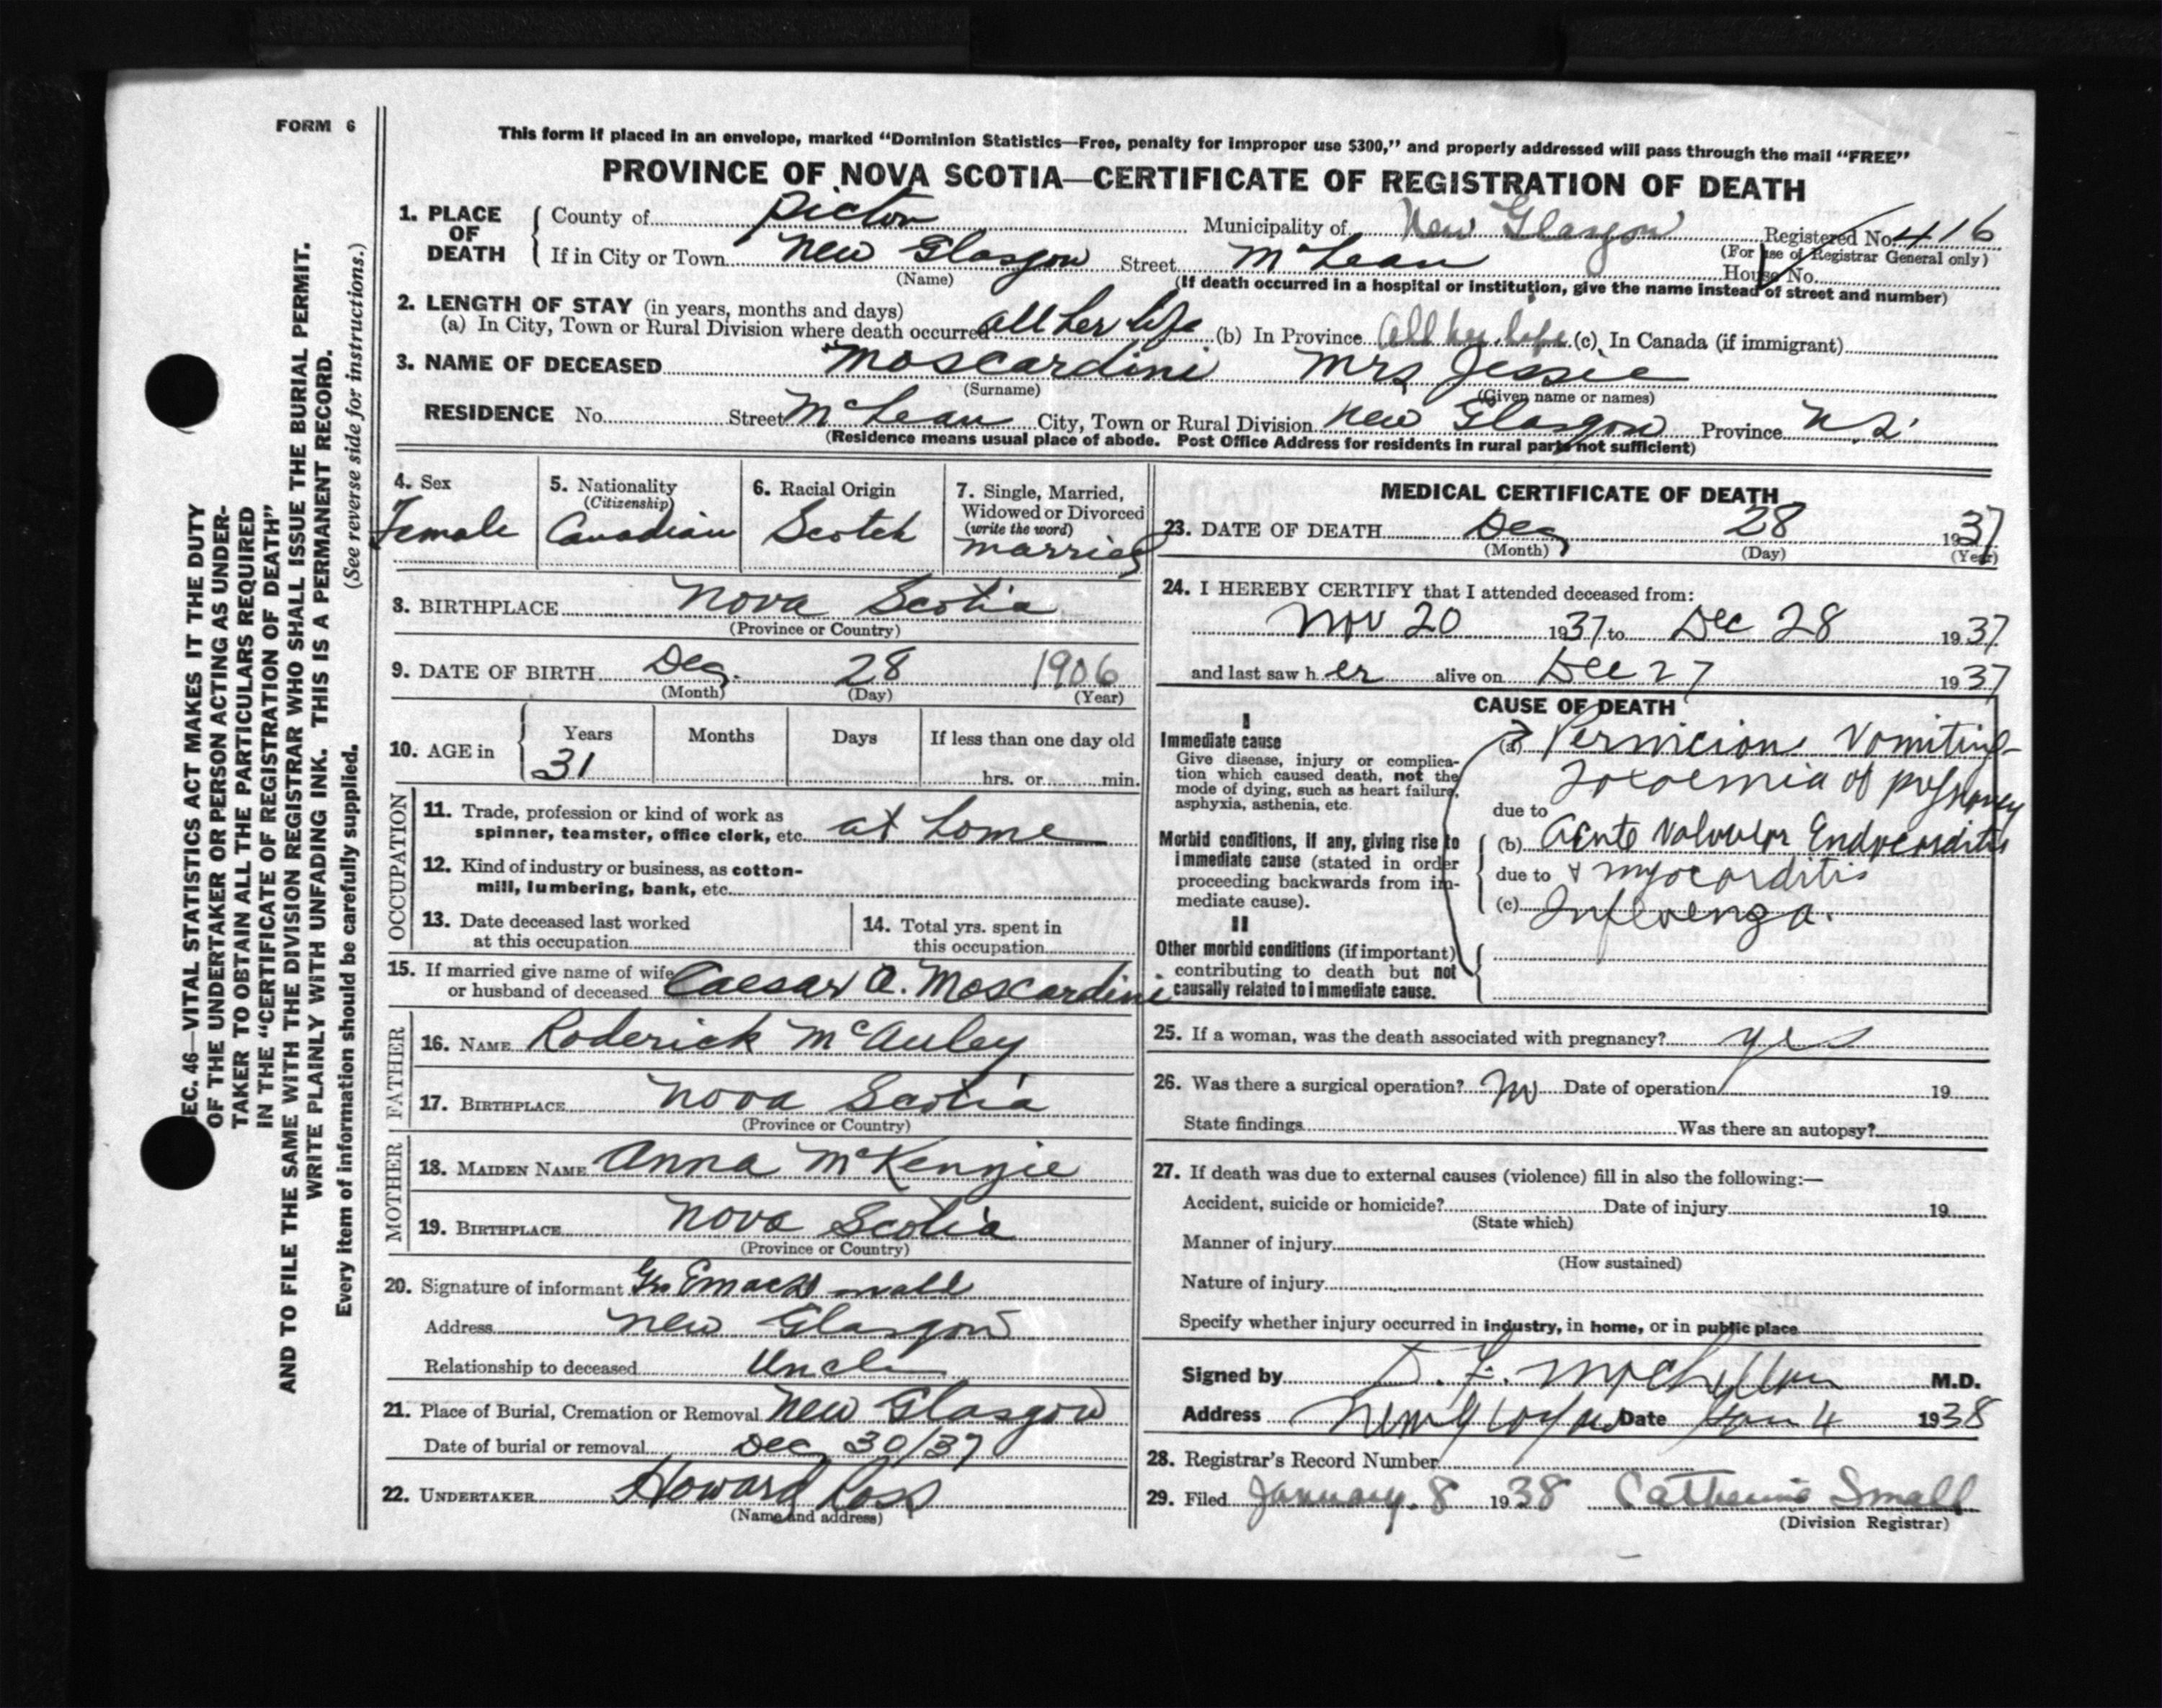 FORM 6
This form if placed in an envelope, marked "Dominion Statistics—Free, penalty for improper use $300," and properly addressed will pass through the mail "FREE"
PROVINCE OF NOVA SCOTIA—CERTIFICATE OF REGISTRATION OF DEATH
1. PLACE OF DEATH
County of Pictou Municipality of New Glasgow Registered No. 416
(For use of Registrar General only)
If in City or Town New Glasgow Street McLean House No.
(Name)
(If death occurred in a hospital or institution, give the name instead of street and number)
2. LENGTH OF STAY (in years, months and days)
(a) In City, Town or Rural Division where death occurred all her life (b) In Province all her life (c) In Canada (if immigrant)
3. NAME OF DECEASED Moscardini Mrs Jessie
(Surname) (Given name or names)
RESIDENCE No. Street McLean City, Town or Rural Division New Glasgow Province N.S.
(Residence means usual place of abode. Post Office Address for residents in rural parts not sufficient)
4. Sex
Female
5. Nationality
(Citizenship)
Canadian
6. Racial Origin
Scotch
7. Single, Married,
Widowed or Divorced
(write the word)
Married
8. BIRTHPLACE Nova Scotia
(Province or Country)
9. DATE OF BIRTH Dec. 28 1906
(Month) (Day) (Year)
10. AGE in
Years Months Days If less than one day old
31 hrs. or min.
OCCUPATION
11. Trade, profession or kind of work as
spinner, teamster, office clerk, etc. at home
12. Kind of industry or business, as cotton-
mill, lumbering, bank, etc.
13. Date deceased last worked
at this occupation
14. Total yrs. spent in
this occupation
15. If married give name of wife
or husband of deceased Caesar A. Moscardini
FATHER
16. NAME Roderick McAuley
17. BIRTHPLACE Nova Scotia
(Province or Country)
MOTHER
18. MAIDEN NAME Anna McKenzie
19. BIRTHPLACE Nova Scotia
(Province or Country)
20. Signature of informant
Address New Glasgow
Relationship to deceased Uncle
21. Place of Burial, Cremation or Removal New Glasgow
Date of burial or removal Dec 30/37
22. UNDERTAKER Howard Ross
(Name and address)
MEDICAL CERTIFICATE OF DEATH
23. DATE OF DEATH Dec 28 1937
(Month) (Day) (Year)
24. I HEREBY CERTIFY that I attended deceased from:
Nov 20 1937 to Dec 28 1937
and last saw h er alive on Dec 27 1937
CAUSE OF DEATH
I
Immediate cause
Give disease, injury or complica-
tion which caused death, not the
mode of dying, such as heart failure,
asphyxia, asthenia, etc.
(a) Pernicious Vomiting
Toxaemia of pregnancy
due to
Morbid conditions, if any, giving rise to
immediate cause (stated in order
proceeding backwards from im-
mediate cause).
(b) Acute Valvular Endocarditis
due to & myocarditis
(c) Influenza.
II
Other morbid conditions (if important)
contributing to death but not
causally related to immediate cause.
25. If a woman, was the death associated with pregnancy? yes
26. Was there a surgical operation? No Date of operation 19
State findings Was there an autopsy?
27. If death was due to external causes (violence) fill in also the following:—
Accident, suicide or homicide? Date of injury 19
(State which)
Manner of injury
(How sustained)
Nature of injury
Specify whether injury occurred in industry, in home, or in public place
Signed by D. F. M.D.
Address New Glasgow Date Jan 4 1938
28. Registrar's Record Number
29. Filed January 8 1938 Catherine Small
(Division Registrar)
SEC. 46—VITAL STATISTICS ACT MAKES IT THE DUTY
OF THE UNDERTAKER OR PERSON ACTING AS UNDER-
TAKER TO OBTAIN ALL THE PARTICULARS REQUIRED
IN THE "CERTIFICATE OF REGISTRATION OF DEATH"
AND TO FILE THE SAME WITH THE DIVISION REGISTRAR WHO SHALL ISSUE THE BURIAL PERMIT.
WRITE PLAINLY WITH UNFADING INK. THIS IS A PERMANENT RECORD.
Every item of information should be carefully supplied.
(See reverse side for instructions.)